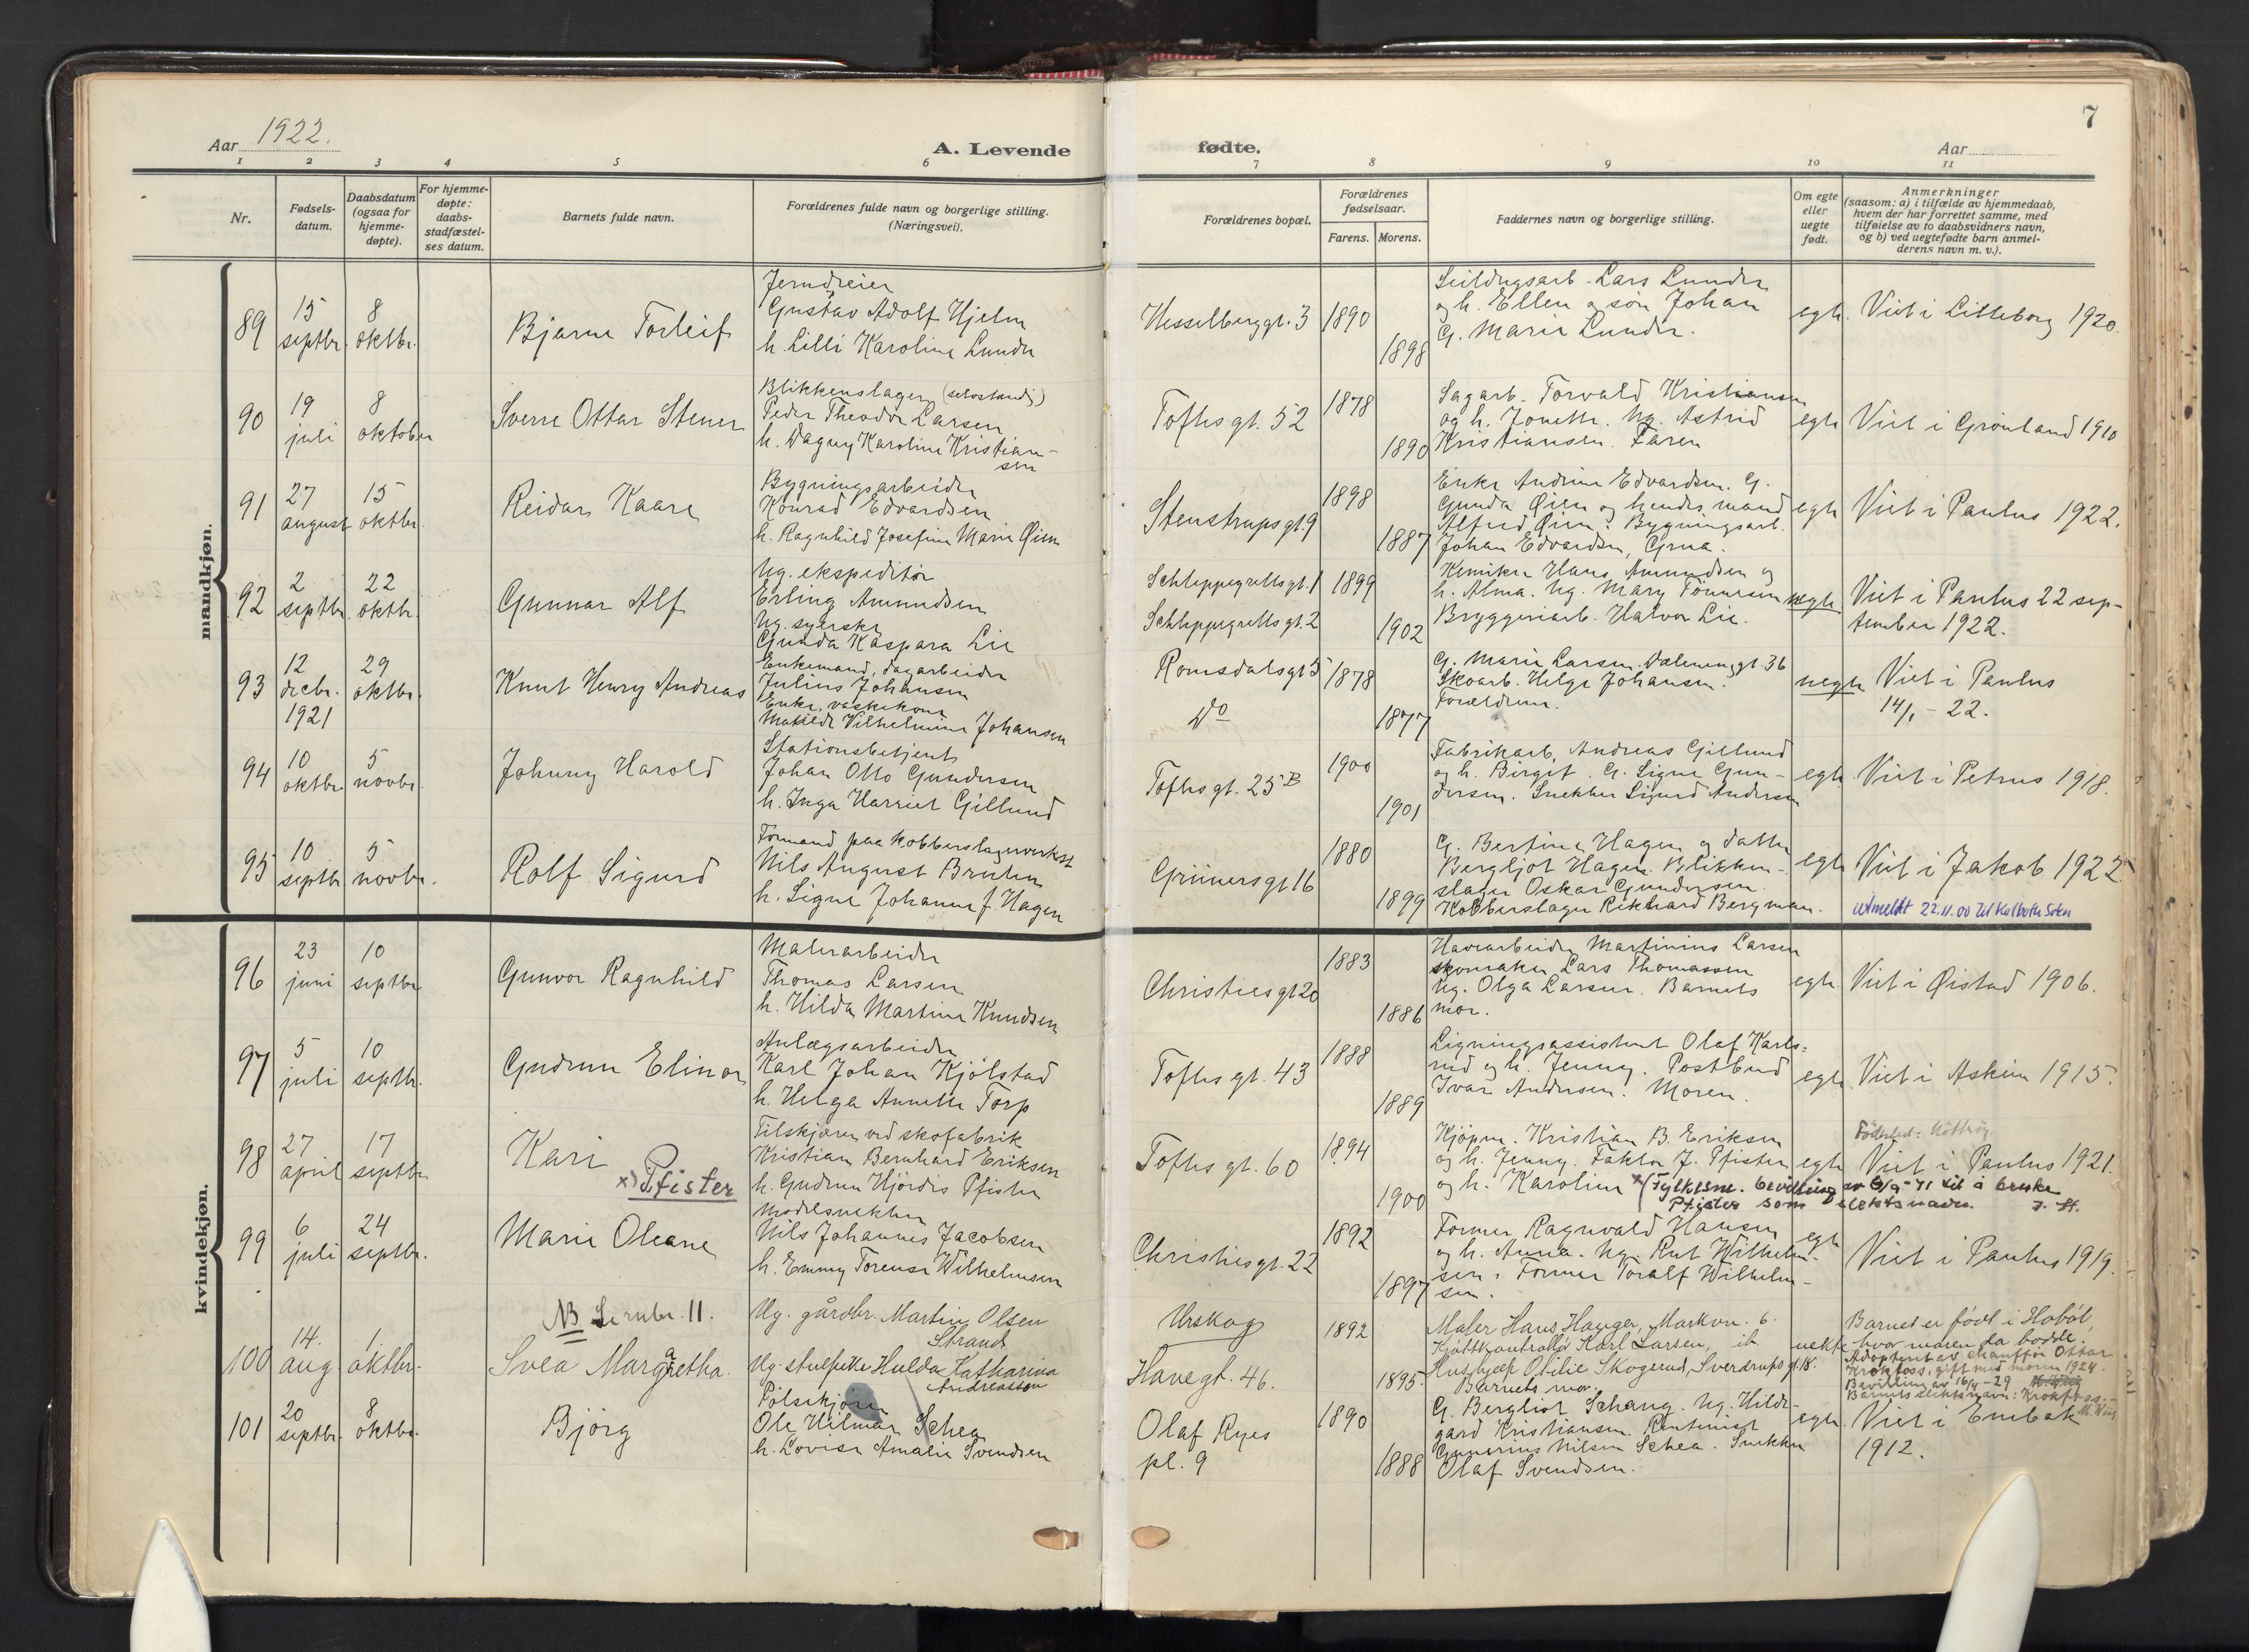 7
Aar 1922.
A. Levende
fødte.
Aar
1 2 3 4 5 6 7 8 9 10 11
Nr.
Fødsels-
datum.
Daabsdatum
(ogsaa for
hjemme-
døpte).
For hjemme-
døpte:
daabs-
stadfæstel-
ses datum.
Barnets fulde navn.
Forældrenes fulde navn og borgerlige stilling.
(Næringsvei).
Forældrenes bopæl.
Forældrenes
fødselsaar.
Farens. Morens.
Faddernes navn og borgerlige stilling.
Om egte
eller
uegte
født.
Anmerkninger
(saasom: a) i tilfælde av hjemmedaab,
hvem der har forrettet samme, med
tilføielse av to daabsvidners navn,
og b) ved uegtefødte barn anmel-
derens navn m. v.).
mandkjøn.
89
15
septbr.
8
oktbr.
Bjarne Torleif
Jerndreier
Gustav Adolf Hjelm
h. Lilli Karoline Lunde
Hesselberggt. 3
1890
1898
Lars Lunder
og h. Ellen og søn Johan
G. Marie Lunder.
egte.
Viet i Lilleborg 1920.
90
19
juli
8
oktober
Sverre Ottar Stener
Blikkenslager (selvstændig)
Peder Theodor Larsen
h. Dagny Karoline Kristian-
sen
Toftes gt. 52
1878
1890
Sagarb. Torvald Kristiansen
og h. Jonette. Ug. Astrid
Kristiansen. Faren
egte
Viet i Grønland 1910
91
27
august
15
oktbr.
Reidar Kaare
Bygningsarbeider
Konrad Edvardsen
h. Ragnhild Josefine Marie Øien
Stenstrups gt 9
1898
1887
Enke Andrine Edvardsen. G.
Gunda Øien og hendes mand
Alfred Øien. Bygningsarb.
Johan Edvardsen, Grua.
egte
Viet i Paulus 1922.
92
2
septbr.
22
oktbr.
Gunnar Alf
Ug. ekspeditør
Erling Amundsen
Ug. syerske
Gunda Kaspara Lie
Schleppegrellsgt. 1
Schleppegrellsgt. 2
1899
1902
Kemiker Hans Amundsen og
h. Alma. Ug. Mary Tønnesen
Bryggeriarb. Halvor Lie.
uegte
Viet i Paulus 22 sep-
tember 1922.
93
12
decbr.
1921
29
oktbr.
Knut Henry Andreas
Enkemand, dagarbeider
Julius Johansen
Enke, vaskekone
Matilde Vilhelmine Johansen
Romsdalsgt 5
Do
1878
1877
G. Marie Larsen. Dælenenggt. 36
Skoarb. Helge Johansen.
Forældrene.
uegte
Viet i Paulus
14/1 - 22.
94
10
oktbr.
5
novbr.
Johnny Harold
Stationsbetjent
Johan Otto Gundersen
h. Inga Harriet Gillund
Toftes gt. 25 B
1900
1901
Fabrikarb. Andreas Gillund
og h. Birgit. G. Signe Gun-
dersen. Snekker Sigurd Andersen
egte
Viet i Petrus 1918.
95
10
septbr
5
novbr.
Rolf Sigurd
Formand paa kobberslagerverkst
Nils August Bruhn
h. Signe Johanne f. Hagen
Grünersgt 16
1880
1899
G. Bertine Hagen og datter
Bergljot Hagen. Blikken-
slager Oskar Gundersen.
Kobberslager Rikhard Bergman.
egte
Viet i Jakob 1922.
Utmeldt 22.11.00 til
kvindekjøn.
96
23
juni
10
septbr
Gunvor Ragnhild
Malerarbeider
Thomas Larsen
h. Hilda Martine Knudsen
Christies gt 20
1883
1886
Havearbeider Martinius Larsen
skomaker Lars Thomassen
Ug. Olga Larsen. Barnets
mor.
egte.
Viet i Øistad 1906.
97
5
juli
10
septbr.
Gudrun Elinor
Anlægsarbeider
Karl Johan Kjølstad
h. Helga Annette Torp
Toftes gt. 43
1888
1889
Ligningsassistent Olaf Karls-
rud og h. Jenny. Postbud
Ivar Andersen. Moren.
egte
Viet i Askim 1915.
98
27
april
17
septbr
Kari
x) Pfister
Tilskjærer ved skofabrik
Kristian Bernhard Eriksen
h. Gudrun Hjørdis Pfister
Toftes gt. 60
1894
1900
Kjøpm. Kristian B. Eriksen
og h. Jenny. Faktor J. Pfister
og h. Karoline
egte
Fødested:
Viet i Paulus 1921.
x (Fylkesm. bevilling av 6/9-71 til å bruke
Pfister som slektsnavn.
99
6
juli
24
septbr.
Marie Oleane
Modelsnekker
Nils Johannes Jacobsen
h. Emmy Torense Wilhelmsen
Christiesgt. 22
1892
1897
Former Ragnvald Hansen
og h. Anna. Ug. Rut Wilhelm-
sen. Former Toralf Wilhelm-
sen.
egte
Viet i Paulus 1919.
NB Se nubr. 11.
100
14.
aug
1.
oktbr.
Svea Margaretha.
Ug. gårdbr. Martin Olsen
Strand
Ug. stuepike Hulda Katharina
Andreasson
Urskog
Havegt. 46.
1892
1895.
Maler Hans Hauger, Markvn. 6.
Kjøttkontrollør Karl Larsen, ib
Husbyæk Otilie Skogerud, Sverdrups gt. 18.
Barnets mor.
uekte
Barnet er født i Hobøl,
hvor moren da bodde.
Adopteret av chauffør Ottar
Krokfoss, gift med moren 1924.
Bevilling av 16/4-29
Barnets slektsnavn: Krokfoss.
101
20
septbr.
8
oktbr.
Bjørg
Pølsekjører
Ole Hilmar Schea
h. Lovise Amalie Svendsen
Olaf Ryes
pl. 9
1890
1888
G. Bergliot Schang. Ug. Hilde-
gard Kristiansen. Rentenist
Gunerius Nilsen Schea. Snekker
Olaf Svendsen.
egte.
Viet i Enebak
1912.